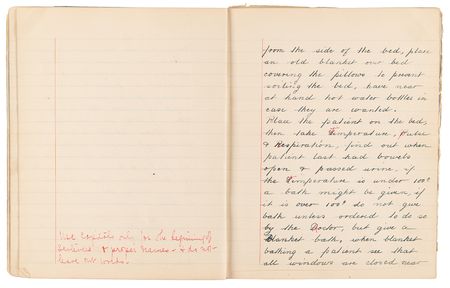 Use Capitals only for the beginning of
sentences & proper names - & do not
leave out words.
from the side of the bed, place
an old blanket over bed
covering the pillows to prevent
soiling the bed, have near
at hand hot water bottles in
case they are wanted.
Place the patient on the bed,
then take Temperature, Pulse
& Respiration, find out when
patient last had bowels
open & passed urine, if
the Temperature is under 100°
a bath might be given, if
it is over 100° do not give
bath unless ordered to do so
by the Doctor, but give a
Blanket bath, when blanket
bathing a patient see that
all windows are closed near